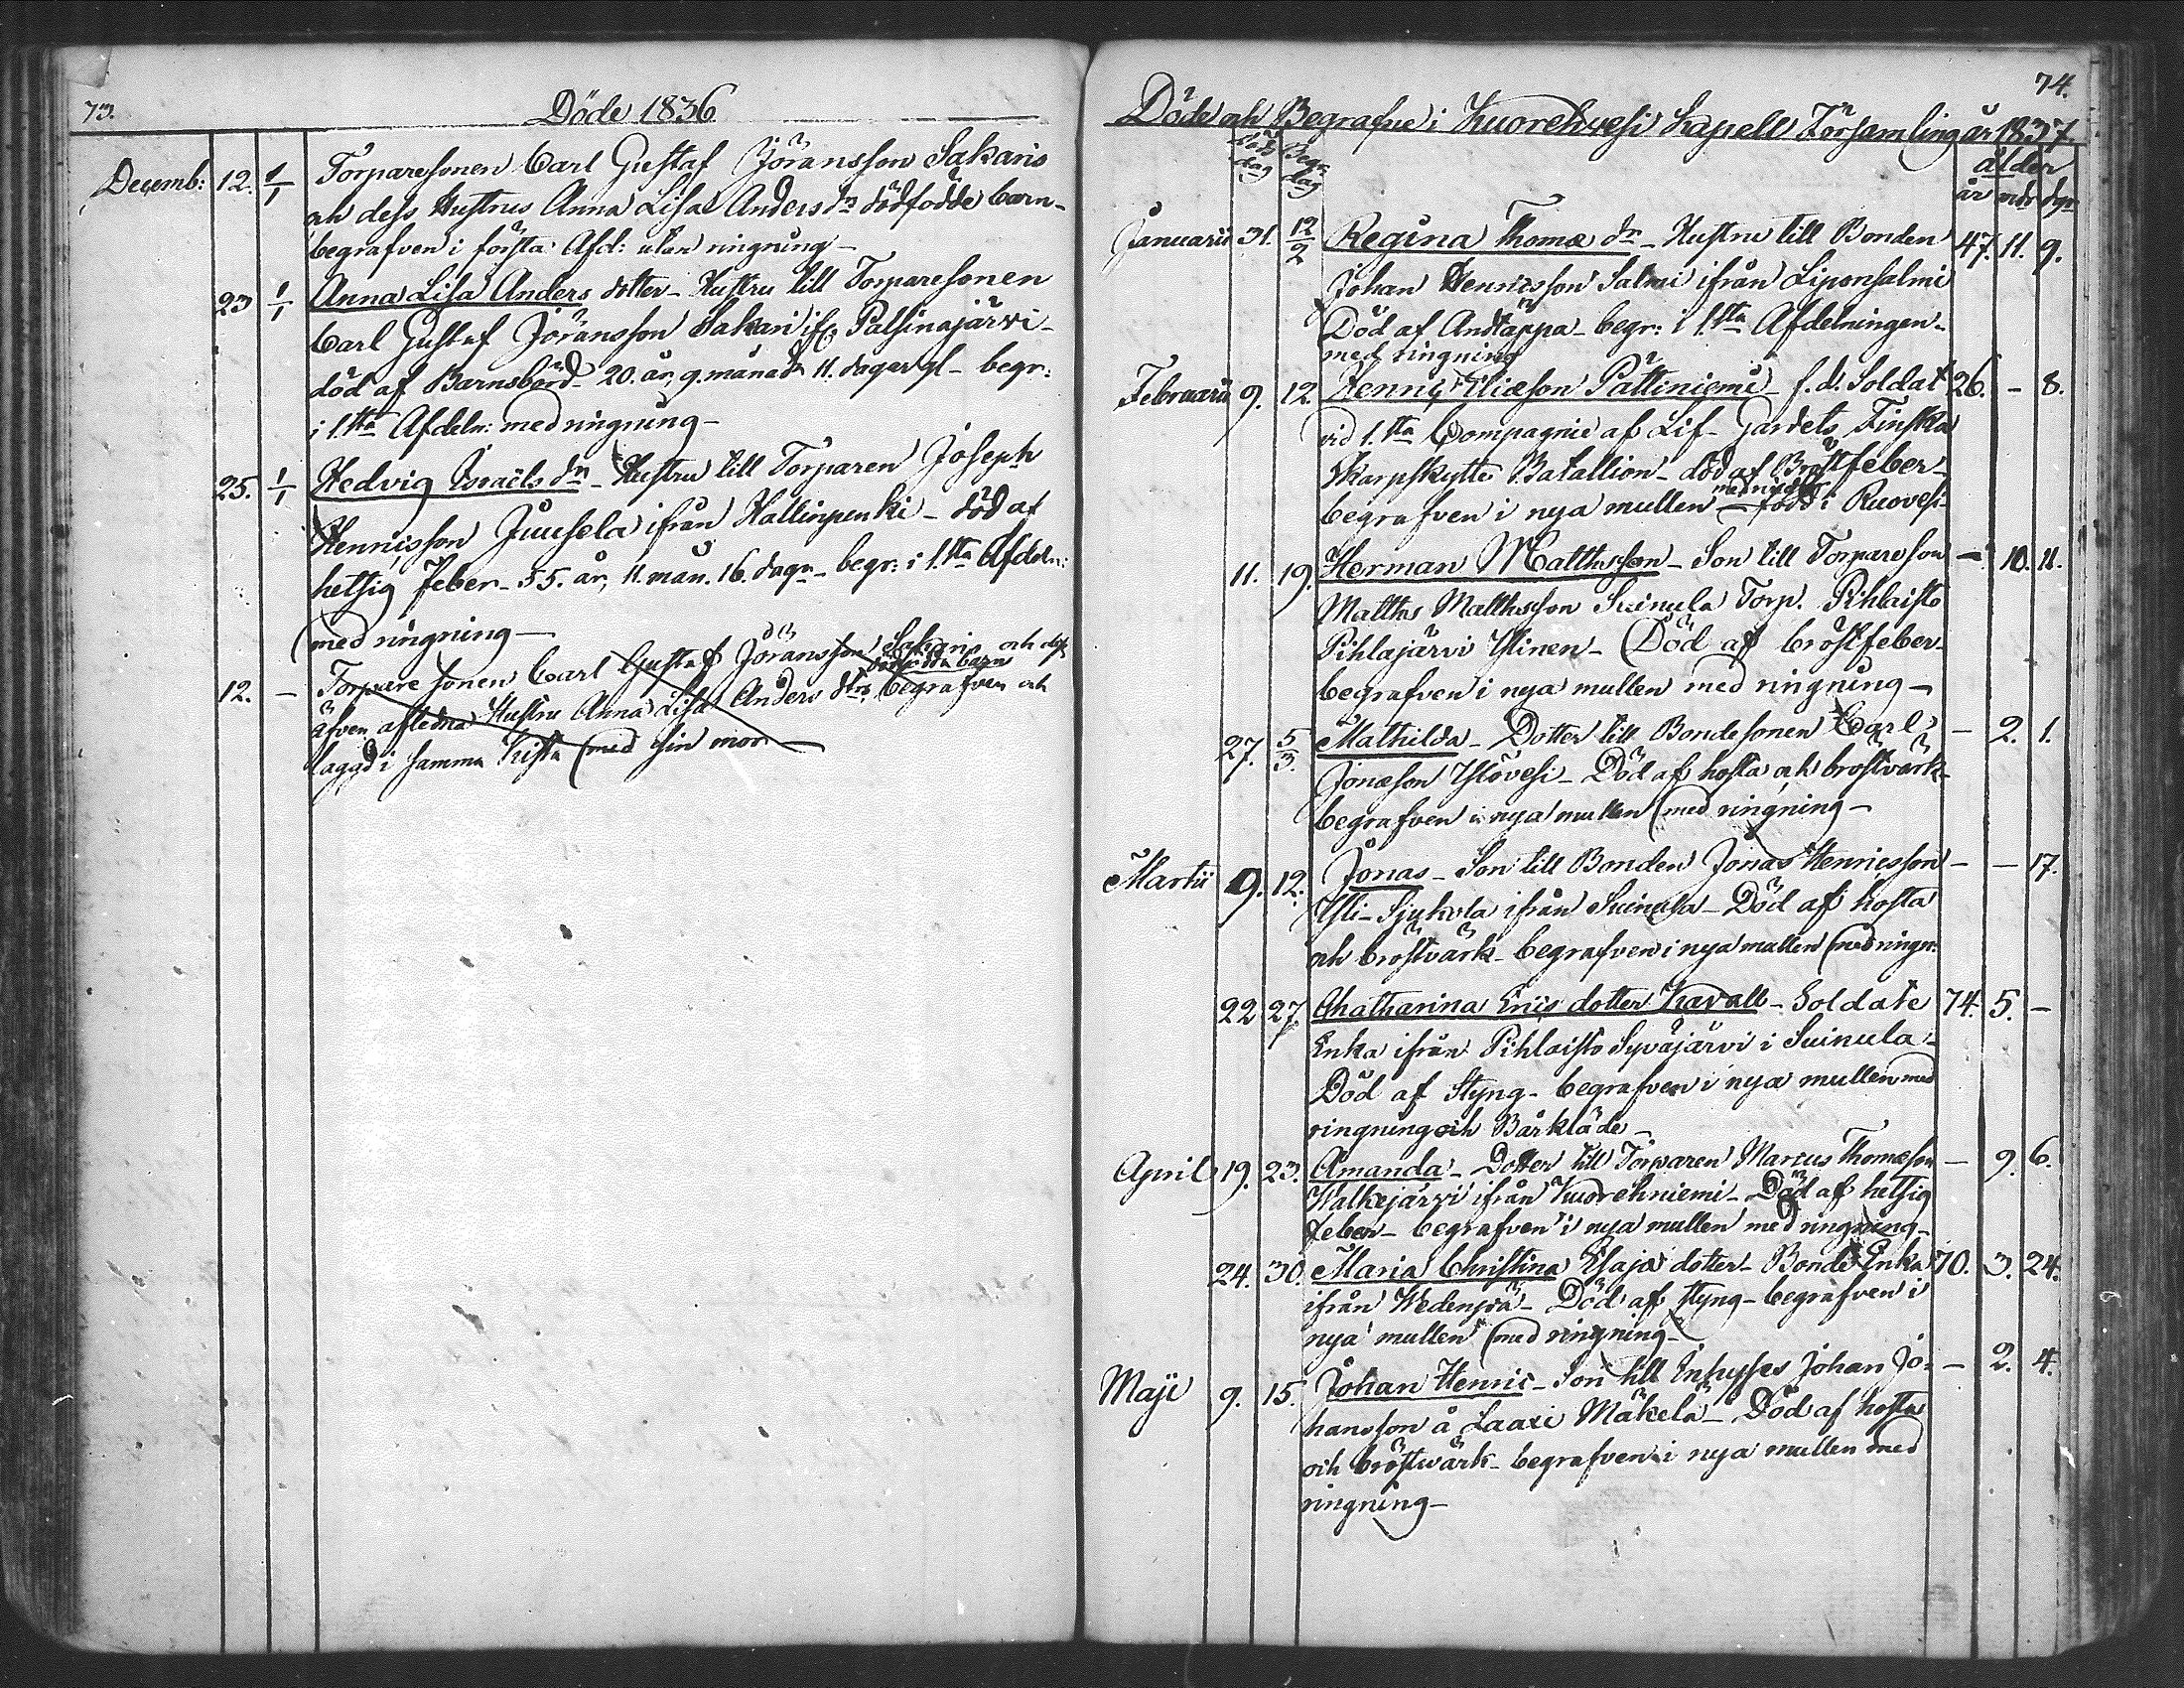 73.
Döde 1836
Decemb: 12. 1/1 Torparesonen Carl Gustaf Jöransson Sakaris
och dess Hustrus Anna Lisa Anders dr dödfödde barn -
begrafven i första Afd: utan ringning -
23 1/1 Anna Lisa Anders dotter - Hustru till Torparesonen
Carl Gustaf Jöransson Sakari ifr. Palsinajärvi -
död af Barnsbörd - 20. år, 9. månadr 11. dagar gl - begr:
i 1.sta Afdeln: med ringning -
25. 1/1 Hedvig Israëls dr - Hustru till Torparen Joseph
Henricsson Juusela ifrån Hallinpenki - död af
hetsig feber - 55. år, 11. mån. 16. dagr - begr: i 1.sta Afdeln:
med ringning -
12. - Torpare sonen Carl Gustaf Jöransson Sakaris och dess
dödfödda barn
äfven afledna Hustru Anna Lisa Anders dtrs begrafven och
laggd i samma kista med sin mor -
74.
Döde och Begrafne i Kuorehvesi Kapell Församling år 1837.
Död dag Begr. dag ålder
år mdr dgr
Januarii 31. 12/2 Regina Thomæ dr - Hustru till Bonden 47. 11. 9.
Johan Henricsson Salmi ifrån Liponsalmi
Död af Andtäppa - begr: i 1.sta Afdelningen -
med ringning
Februarii 9. 12. Henric Eliæson Pättiniemi - f.d. Soldat 26. - 8.
vid 1.sta Compagnie af Lif - Gardets Finska
Skarpskytte Batallion - död af Bröstfeber -
begrafven i nya mullen - född i Ruovesi -
11. 19. Herman Matthsson - Son till Torpareson - 10. 11.
Matths Matthsson Suinula Torp. Pihlaisto
Pihlajärvi Ylinen - Död af bröstfeber -
begrafven i nya mullen med ringning -
27. 5/3. Mathilda - Dotter till Bondesonen Carl - 2. 1.
Jonæson Ylövesi - Död af hosta och bröstvärk -
begrafven i nya mullen med ringning -
Martii 9. 12. Jonas - Son till Bonden Jonas Henricsson - - 17.
Yli - Sjukola ifrån Suinula - Död af hosta
och bröstvärk - begrafven i nya mullen med ringn:
22 27. Chatharina Erics dotter Kavall - Soldate 74. 5. -
Enka ifrån Pihlaisto Syväjärvi i Suinula -
Död af Styng - begrafven i nya mullen med
ringning och Bårkläde -
April 19. 23. Amanda - Dotter till Torparen Marcus Thomæson - 9. 6.
Walkejärvi ifrån Kuorehniemi - Död af hetsig
feber - begrafven i nya mullen med ringning -
24. 30. Maria Christina Esaja dotter - Bonde Enka 70. 3. 24.
ifrån Wedenpää - Död af styng - begrafven i
nya mullen med ringning -
Maji 9. 15. Johan Henric - Son till Inhyses Johan Jo- - 2. 4.
hansson å Laari Mäkelä - Död af hosta
och bröstwärk - begrafven i nya mullen med
ringning -